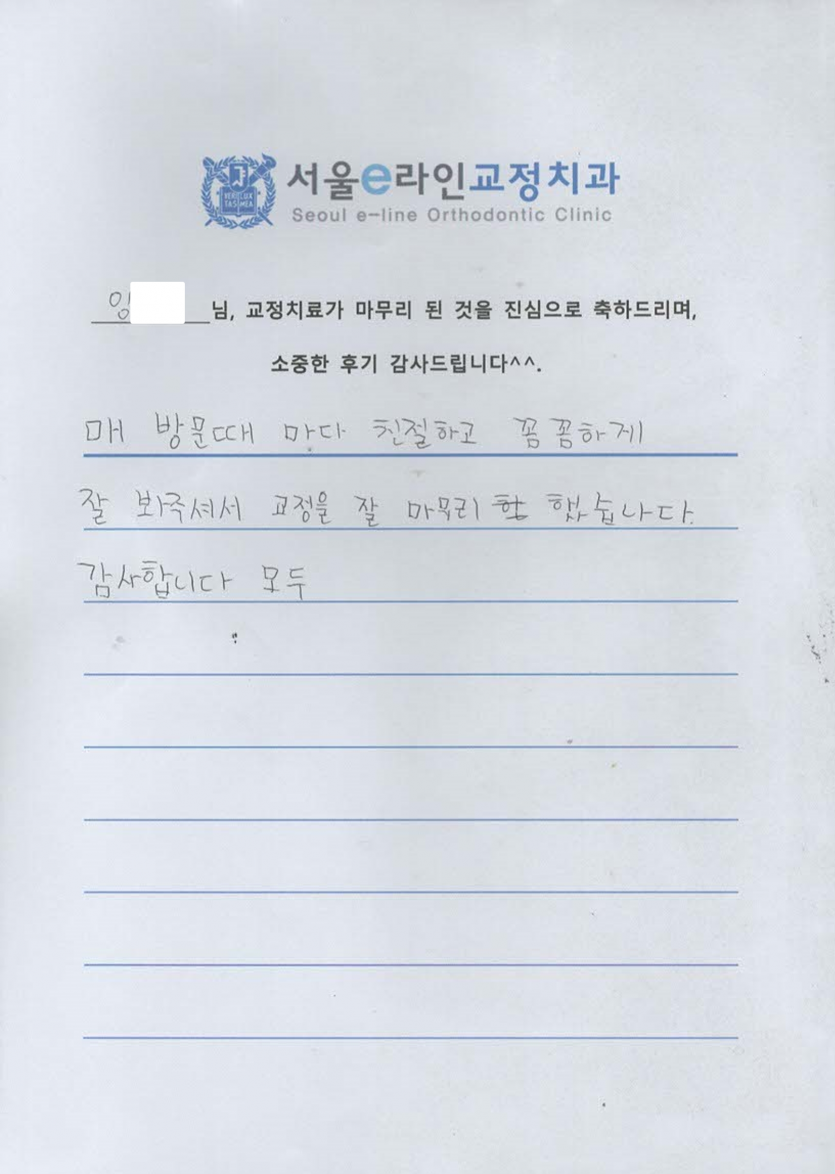 서울e라인교정치과
Seoul e-line Orthodontic Clinic
VERI LUX TAS MEA
임 님, 교정치료가 마무리 된 것을 진심으로 축하드리며,
소중한 후기 감사드립니다^^.
매 방문때 마다 친절하고 꼼꼼하게
잘 봐주셔서 교정을 잘 마무리 했습니다.
감사합니다 모두